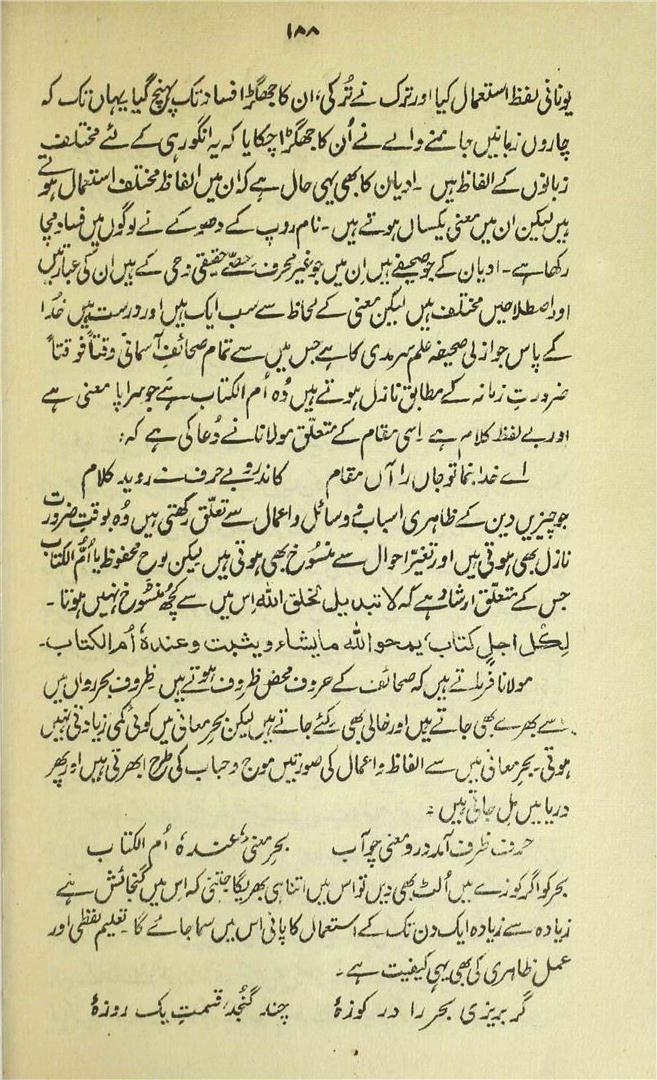 ۱۸۸
یونانی لفظ استعمال کیا اور ترک نے ترکی، ان کا جھگڑا فساد تک پہنچ گیا یہاں تک کہ
چاروں زبانیں جاننے والے نے اُن کا جھگڑا چکایا کہ یہ انگور ہی کے لئے مختلف
زبانوں کے الفاظ ہیں ۔ ادیان کا بھی یہی حال ہے کہ ان میں الفاظ مختلف استعمال ہوتے
ہیں لیکن ان میں معنی یکساں ہوتے ہیں ۔ نام روپ کے دھوکے نے لوگوں میں فساد مچا
رکھا ہے ۔ ادیان کے جو صحیفے ہیں ان میں جو غیر محرف حصے حقیقی وحی کے ہیں ان کی عبارتیں
اور اصطلاحیں مختلف ہیں لیکن معنی کے لحاظ سے سب ایک ہیں اور درست ہیں خدا
کے پاس جو ازلی صحیفہ علم سرمدی کا ہے جس میں سے تمام صحائفِ آسمانی وقتاً فوقتاً
ضرورتِ زمانہ کے مطابق نازل ہوتے ہیں وُہ اُم الکتاب ہے جو سراپا معنی ہے
اور بے لفظ کلام ہے ۔ اسی مقام کے متعلق مولانا نے دُعا کی ہے کہ :
اے خدا بنما تو جاں را آں مقام کاندرو بے حرف مے روید کلام
جو چیزیں دین کے ظاہری اسباب و وسائل و اعمال سے تعلق رکھتی ہیں وُہ بوقتِ ضرورت
نازل بھی ہوتی ہیں اور تغیر احوال سے منسُوخ بھی ہوتی ہیں لیکن لوح محفوظ یا اُمُّ الکتاب
جس کے متعلق ارشاد ہے کہ لا تبدیل لخلق اللہ اس میں سے کچھ منسُوخ نہیں ہوتا ۔
لِکُل اجلٍ کتاب، یمحو اللہ ما یشاء و یثبت و عندہٗ اُم الکتاب ۔
مولانا فرماتے ہیں کہ صحائف کے حروف محض ظروف ہوتے ہیں ۔ ظروف بحر رواں میں
سے بھرے بھی جاتے ہیں اور خالی بھی کئے جاتے ہیں لیکن بحرِ معانی میں کوئی کمی زیادتی نہیں
ہوتی ۔ بحرِ معانی میں سے الفاظ و اعمال کی صورتیں موج و حباب کی طرح ابھرتی ہیں اور پھر
دریا میں مِل جاتی ہیں :
حرف ظرف آمد درو معنی چو آب بحرِ معنی، عندہٗ اُم الکتاب
بحر کو اگر کوزے میں اُلٹ بھی دیں تو اس میں اتنا ہی بھریگا جتنی کہ اس میں گنجائش ہے
زیادہ سے زیادہ ایک دن تک کے استعمال کا پانی اس میں سما جائے گا ۔ تعلیم لفظی اور
عمل ظاہری کی بھی یہی کیفیت ہے ۔
گر بریزی بحر را در کوزۂ چند گنجد، قسمتِ یک روزۂ